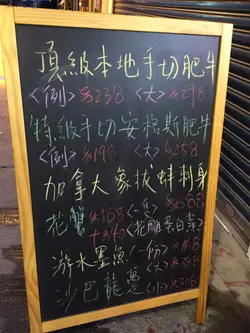 頂級本地手切肥牛
<例>$238 <大>$298
特級手切安格斯肥牛
<例>$198 <大>$258
加拿大象拔蚌刺身
花雕 $168 <一隻> $688
+$40 <花雕蛋白蒸>
游水墨魚 <一份> $168
<大> $
沙巴龍躉 <小> $